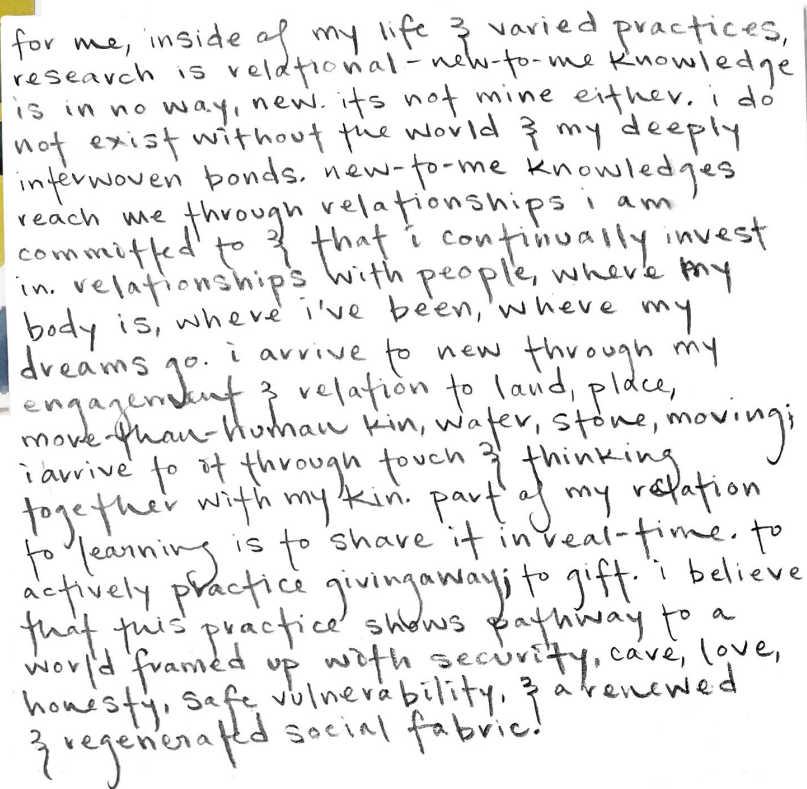 for me, inside of my life & varied practices,
research is relational - new-to-me knowledge
is in no way, new. its not mine either. i do
not exist without the world & my deeply
interwoven bonds. new-to-me knowledges
reach me through relationships i am
committed to & that i continually invest
in. relationships with people, where my
body is, where i've been, where my
dreams go. i arrive to new through my
engagement & relation to land, place,
more-than-human kin, water, stone, moving;
i arrive to it through touch & thinking
together with my kin. part of my relation
to learning is to share it in real-time. to
actively practice givingaway; to gift. i believe
that this practice shows pathway to a
world framed up with security, care, love,
honesty, safe vulnerability, & a renewed
& regenerated social fabric!